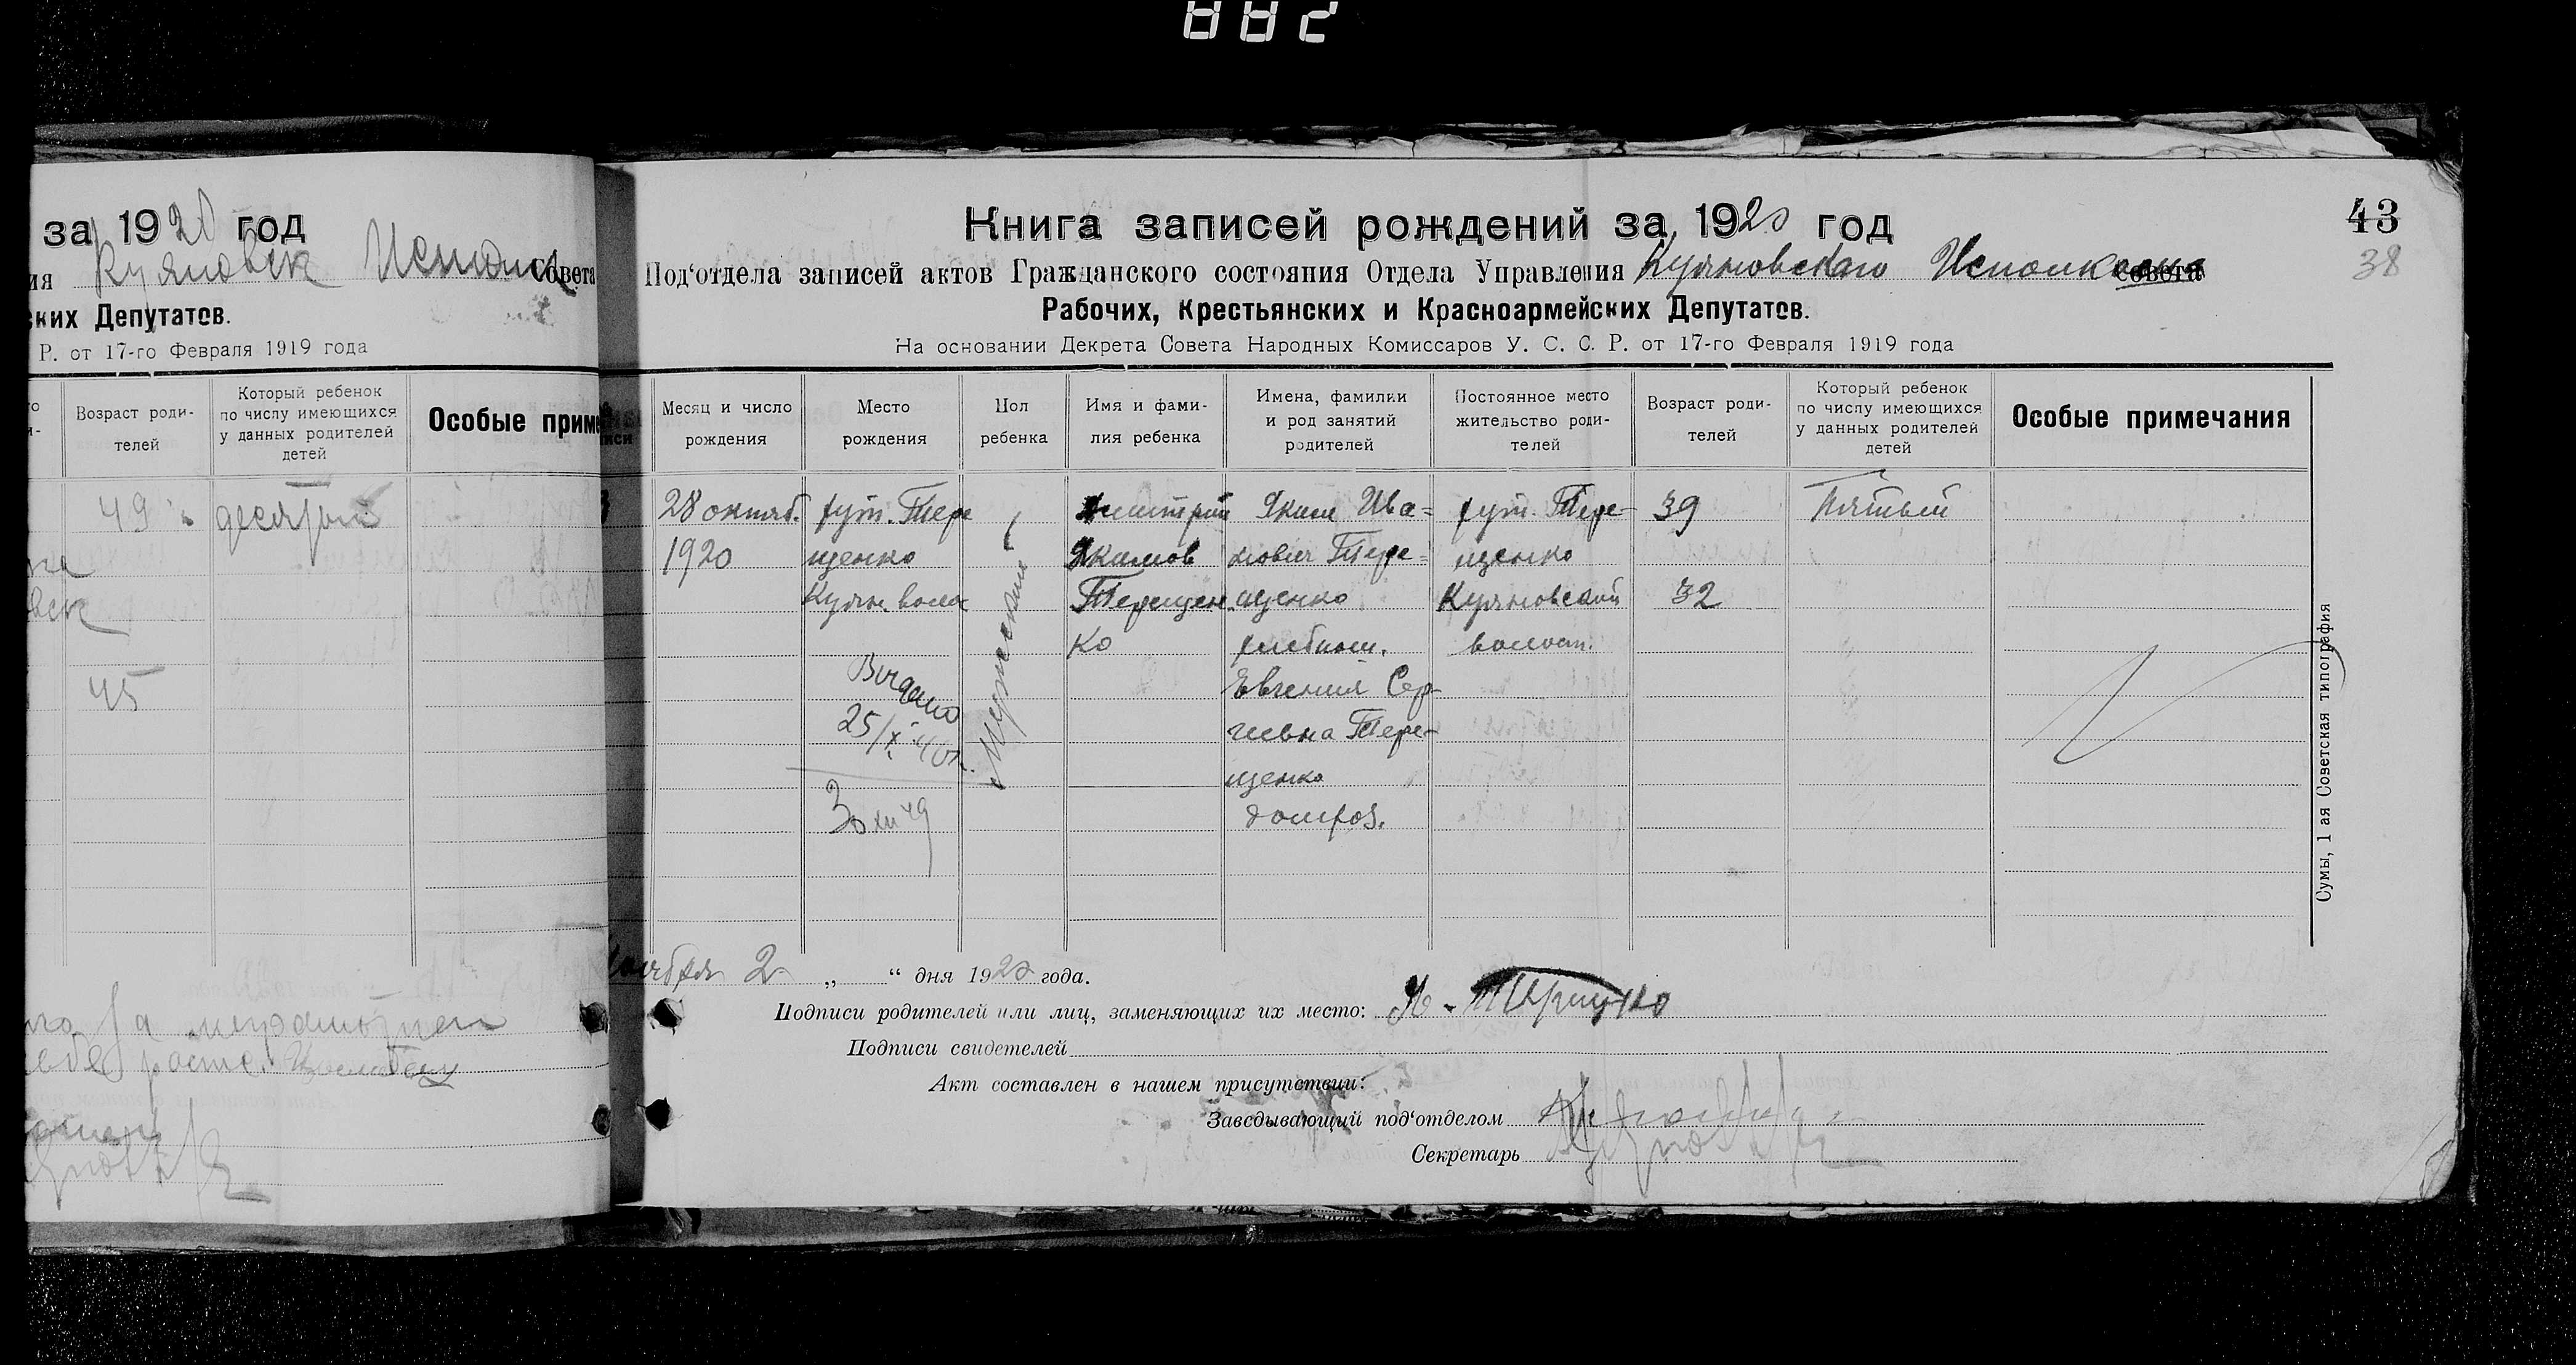 882
за 1920 год
ия Куяновск Исполк Совета
ских Депутатов.
Р. от 17-го Февраля 1919 года
Возраст роди-
телей
Который ребенок
по числу имеющихся
у данных родителей
детей
Особые приме
49
десятый
45
Книга записей рождений за 1920 год
43
38
Под‘отдела записей актов Гражданского состояния Отдела Управления Куяновскаго Исполкома Совета
Рабочих, Крестьянских и Красноармейских Депутатов.
На основании Декрета Совета Народных Комиссаров У. С. С. Р. от 17-го Февраля 1919 года
Месяц и число
рождения
Место
рождения
Пол
ребенка
Имя и фами-
лия ребенка
Имена, фамилии
и род занятий
родителей
Постоянное место
жительство роди-
телей
Возраст роди-
телей
Который ребенок
по числу имеющихся
у данных родителей
детей
Особые примечания
28 октяб.
1920
хут. Тере
щенко
Куян. волос
Видано
25/X 40г.
3 XII 49
Мужеский
Дмитрий
Якимов
Терещен
ко
Яким Ива=
нович Тере=
щенко
хлебпаш.
Евгения Сер-
гиевна Тере-
щенко
домхоз.
хут. Тере-
щенко
Куяновской
волост.
39
32
Пятый
Сумы, 1 ая Советская типография
ноября 2 „ “ дня 1920 года.
Подписи родителей или лиц, заменяющих их место: Я. Терищко
Подписи свидетелей
Акт составлен в нашем присутствии:
Заведывающий под‘отделом
Секретарь